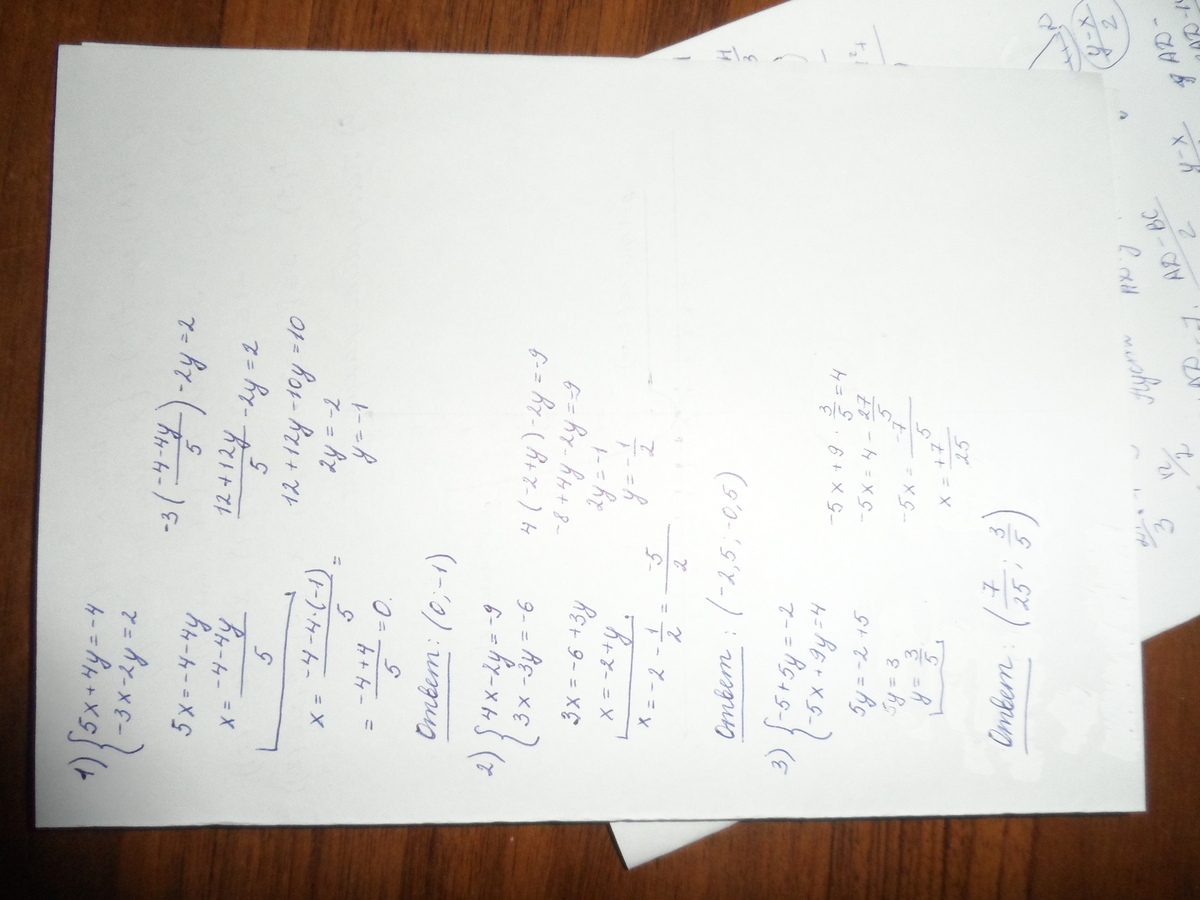 1) { 5x + 4y = -4
-3x - 2y = 2
5x = -4 - 4y
x = \frac{-4 - 4y}{5}
-3 ( \frac{-4 - 4y}{5} ) - 2y = 2
\frac{12 + 12y}{5} - 2y = 2
12 + 12y - 10y = 10
2y = -2
y = -1
x = \frac{-4 - 4 \cdot (-1)}{5} =
= \frac{-4 + 4}{5} = 0.
Ответ: (0; -1)
2) { 4x - 2y = -9
3x - 3y = -6
3x = -6 + 3y
x = -2 + y
4 (-2 + y) - 2y = -9
-8 + 4y - 2y = -9
2y = -1
y = -\frac{1}{2}
x = -2 - \frac{1}{2} = \frac{-5}{2}
Ответ: (-2,5; -0,5)
3) { -5 + 5y = -2
-5x + 9y = 4
5y = -2 + 5
5y = 3
y = \frac{3}{5}
-5x + 9 \cdot \frac{3}{5} = 4
-5x = 4 - \frac{27}{5}
-5x = \frac{-7}{5}
x = \frac{+7}{25}
Ответ: ( \frac{7}{25}; \frac{3}{5} )
\frac{y - x}{2}
\frac{y - x}{2}
\frac{AD - BC}{2}
Пусть